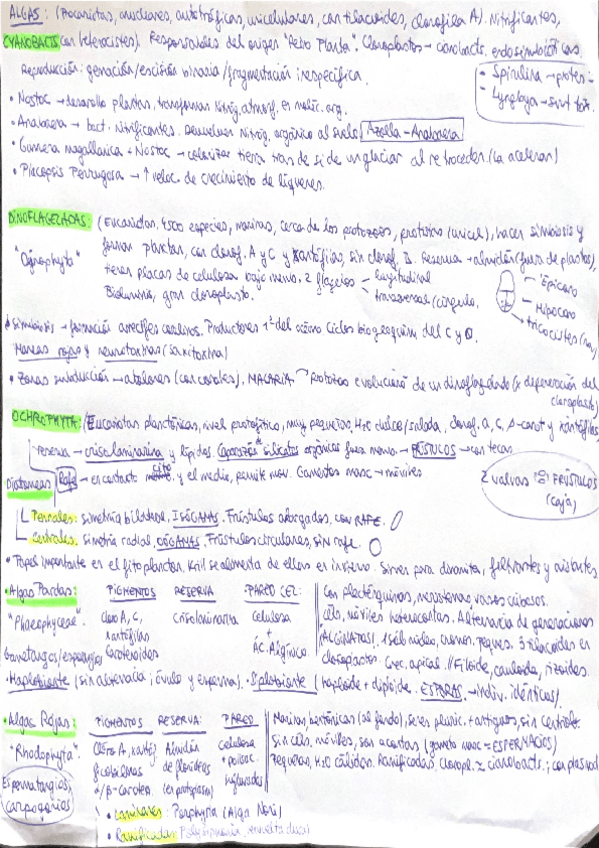 ALGAS: (Procariotas, unicelulares, con tilacoides, clorofila A). Nitrificantes,
CYANOBACTS (con heterocistes). Responsables del origen "Planta". Cloroplastos → cianobacts. endosimbióticas.
Reproducción: gemación/escisión binaria/fragmentación inespecífica.
• Spirulina → protein
• Lyngbya →
• Nostoc → desarrollo plantas, transforman Nitróg. atmosf. en matic. org.
• Anabaena → bact. nitrificantes. Devuelven Nitróg. orgánico al suelo Azolla - Anabaena
• Gunnera magallanica + Nostoc → colonizar tierra tras de si de un glaciar al retroceder (la aceleran)
• Placopsis Perrugosa → ↑ veloc. de crecimiento de líquenes.
DINOFLAGELADAS: (Eucariotas, 4500 especies, marinas, cerca de los protozoos, protistas (unicel), hacen simbiosis y
forman plancton, con clorof. A y C y xantofilas, sin clorof. B. Reserva → almidón (fuera de plastos),
tienen placas de celulosa bajo memb. 2 flagelos longitudinal
transversal (cíngulo)
Biolumin, gran cloroplasto.
Epicono
Hipocono
tricocistes
simbiosis → formación arrecifes coralinos. Productores 1º del océano Ciclos biogeoquím del C y O.
Mareas rojas y neurotoxinas (saxitoxina)
• Zonas introducción → atolones (con corales). MALARIA protozoo evolucionó de un dinoflagelado (x degeneración del
cloroplasto)
OCHROPHYTA: (Eucariotas planctónicas, nivel protofítico, muy pequeñas, H2O dulce/salada, clorof. a, c, β-carot y xantófilas
reserva → crisolaminarina y lípidos. Caparazón silicatos orgánicos fuera memb → FRÚSTULOS → con tecas
Diatomeas Rafe → en contacto y el medio, permite mov. Gametos masc → móviles
2 valvas FRÚSTULOS
(caja)
Pennales: simetría bilateral, ISÓGAMAS. Frústulos alargados, con RAFE.
Centrales: simetría radial, OÓGAMAS. Frústulos circulares, sin rafe.
• Papel importante en el fitoplancton. Krill se alimenta de ellas en invierno. Sirven para dinamita, filtrantes y aislantes
• Algas Pardas: PIGMENTOS RESERVA PARED CEL:
"Phaeophyceae" Cloro A, C, Crisolaminarina Celulosa
xantófilas +
Carotenoides ÁC. Algínico
Gametangios/esporangios
Con plasténquimas, necesitamos vasos cribosos.
céls. móviles heterocontas. Alternancia de generaciones
ALGINATOS. 1 sólo núcleo, cromos. Peques. 3 tilacoides en
cloroplastos. Crec. apical. Filoide, cauloide, rizoides.
• Haplobionte (sin alternancia; óvulo y esperma). • Diplobionte (haploide + diploide. ESPORAS. → indiv. idénticos)
• Algas Rojas: PIGMENTOS RESERVA: PARED
"Rhodophyta" Cloro A, xantóf Almidón celulosa
ficobilinas de florideas + polisac.
α/β-caroten. (en protoplasma) sulfurados
Espermatangios,
carpogonios
Marinas, bentónicas (al fondo), seres pluric. + antiguos, sin centriolo
Sin céls. móviles, son acontas (gameto masc = ESPERMACIOS)
Pequeñas, H2O cálidas. Ramificadas, cloropl. ≈ cianobacts.;
• Laminares: Porphyra (Alga Nori)
• Ramificadas: Polysiphonia